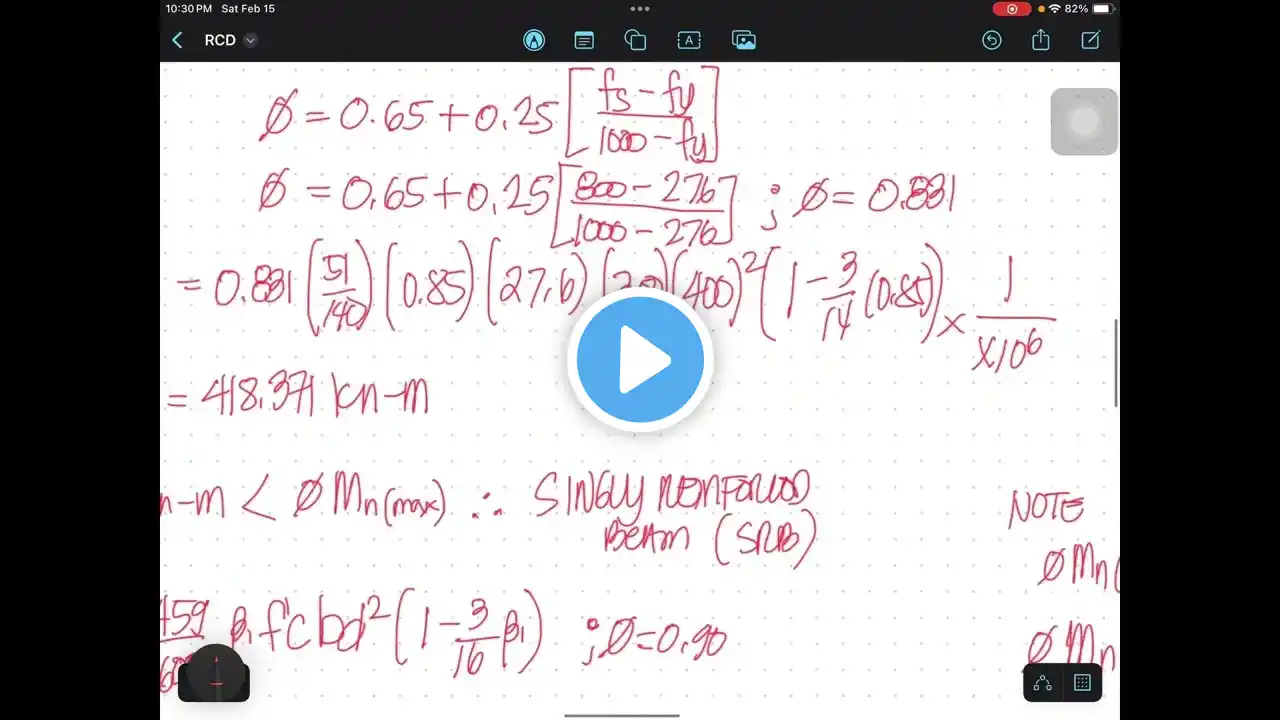 10:30 PM Sat Feb 15
82%
RCD
A
Ø = 0.65 + 0.25 [fs - fy / 1000 - fy]
Ø = 0.65 + 0.25 [800 - 276 / 1000 - 276] ; Ø = 0.831
= 0.831 (51/140) (0.85) (27.6) (400)² (1 - 3/14 (0.85)) × 1/×10⁶
= 418.371 kn-m
n-m < Ø Mn(max) ∴ SINGLY REINFORCED
BEAM (SRB)
NOTE
Ø Mn(
459 β₁ f'c bd² (1 - 3/16 β₁) ; Ø = 0.90
Ø Mn